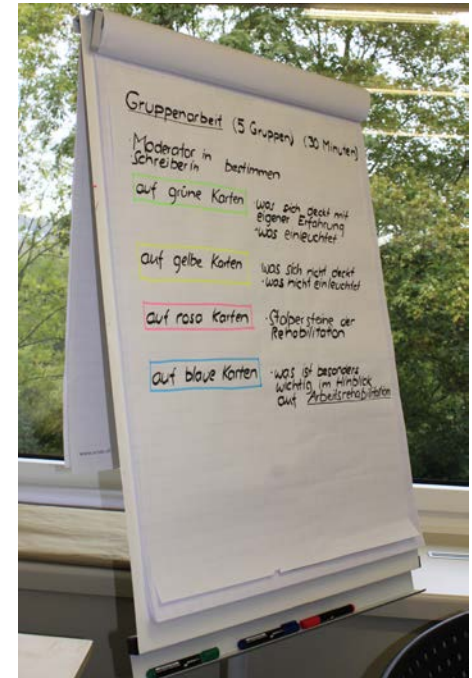 Gruppenarbeit (5 Gruppen) (30 Minuten)
· Moderator in
· Schreiberin bestimmen
auf grüne Karten
· was sich deckt mit
eigener Erfahrung
· was einleuchtet
auf gelbe Karten
· was sich nicht deckt
· was nicht einleuchtet
auf rosa Karten
· Stolpersteine der
Rehabilitation
auf blaue Karten
· was ist besonders
wichtig im Hinblick
auf Arbeitsrehabilitation